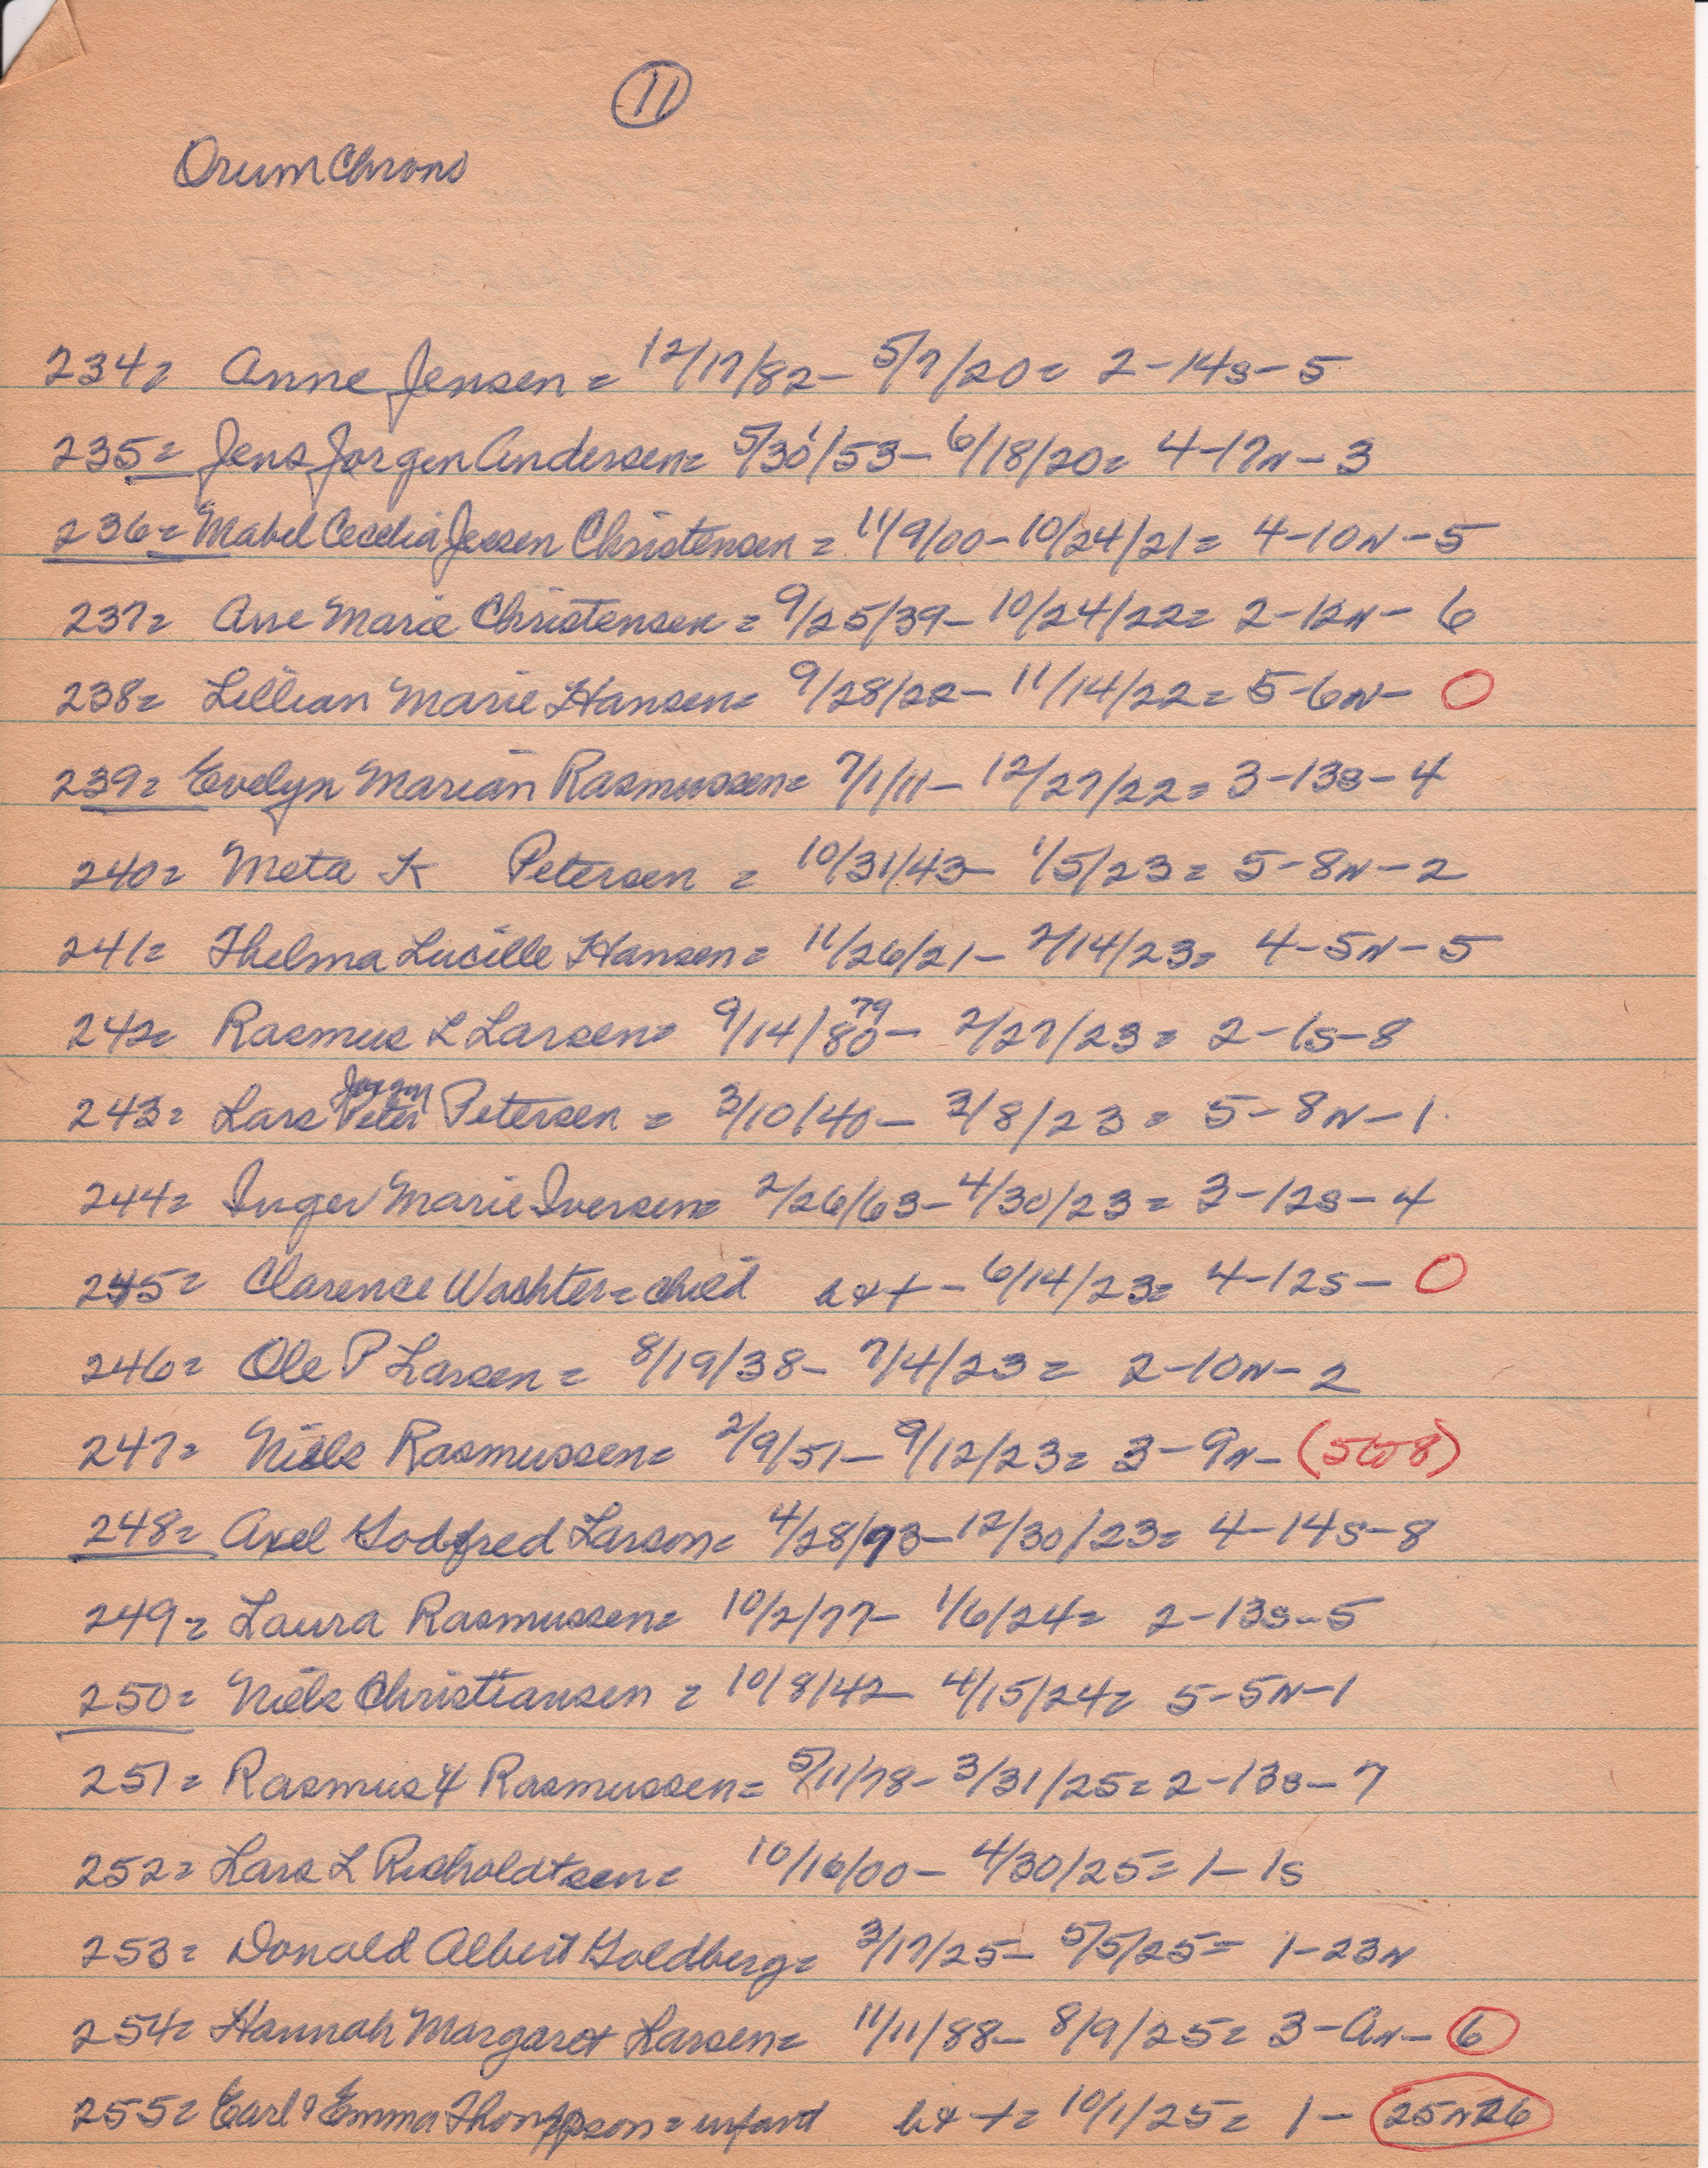 11
Orum Chrono
234= Anne Jensen = 12/17/82- 5/7/20= 2-14s-5
235= Jens Jorgen Andersen= 5/30/53- 6/18/20= 4-17N-3
236= Mabel Cecelia Jessen Christensen = 11/9/00-10/24/21= 4-10N-5
237= Ane Marie Christensen = 9/25/39- 10/24/22= 2-12N- 6
238= Lillian Marie Hansen= 9/28/22- 11/14/22= 5-6N- 0
239= Evelyn Marian Rasmussen= 7/1/11- 12/27/22= 3-13s-4
240= Meta K Petersen = 10/31/43- 1/5/23= 5-8N-2
241= Thelma Lucille Hansen= 11/26/21- 2/14/23= 4-5N-5
79
242= Rasmus L Larsen= 9/14/80- 2/27/23= 2-1s-8
Jorgen
243= Lars Peter Petersen = 3/10/40- 3/8/23= 5-8N-1
244= Inger Marie Iversen= 2/26/63-4/30/23= 3-12s-4
245= Clarence Washter= child b&+- 6/14/23= 4-12s- 0
246= Ole P Larsen= 8/19/38- 7/4/23= 2-10N-2
247= Niels Rasmussen= 2/9/51- 9/12/23= 3-9N- (5to8)
248= Axel Godfred Larson= 4/28/93-12/30/23= 4-14s-8
249= Laura Rasmussen= 10/2/77- 1/6/24= 2-13s-5
250= Niels Christiansen = 10/8/42- 4/15/24= 5-5N-1
251= Rasmus H Rasmussen= 5/11/78- 3/31/25= 2-13s-7
252= Lars L Risholdtsen= 10/16/00- 4/30/25= 1-1s
253= Donald Albert Goldberg= 3/17/25- 5/5/25= 1-23N
254= Hannah Margaret Larsen= 11/11/88- 8/9/25= 3-AN- 6
255= Earl & Emma Thompson= infant b&+= 10/1/25= 1- 25N26